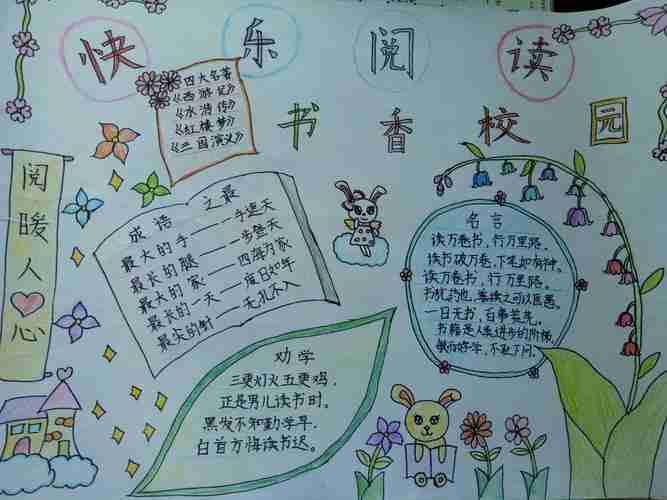 快乐阅读
书香校园
四大名著
《西游记》
《水浒传》
《红楼梦》
《三国演义》
阅暖人心
成语之最
最大的手——一手遮天
最长的腿——一步登天
最大的家——四海为家
最长的一天——度日如年
最尖的针——无孔不入
劝学
三更灯火五更鸡，
正是男儿读书时。
黑发不知勤学早，
白首方悔读书迟。
名言
读万卷书，行万里路。
读书破万卷，下笔如有神。
读万卷书，行万里路。
书犹药也，善读之可以医愚。
一日无书，百事荒芜。
书籍是人类进步的阶梯。
敏而好学，不耻下问。